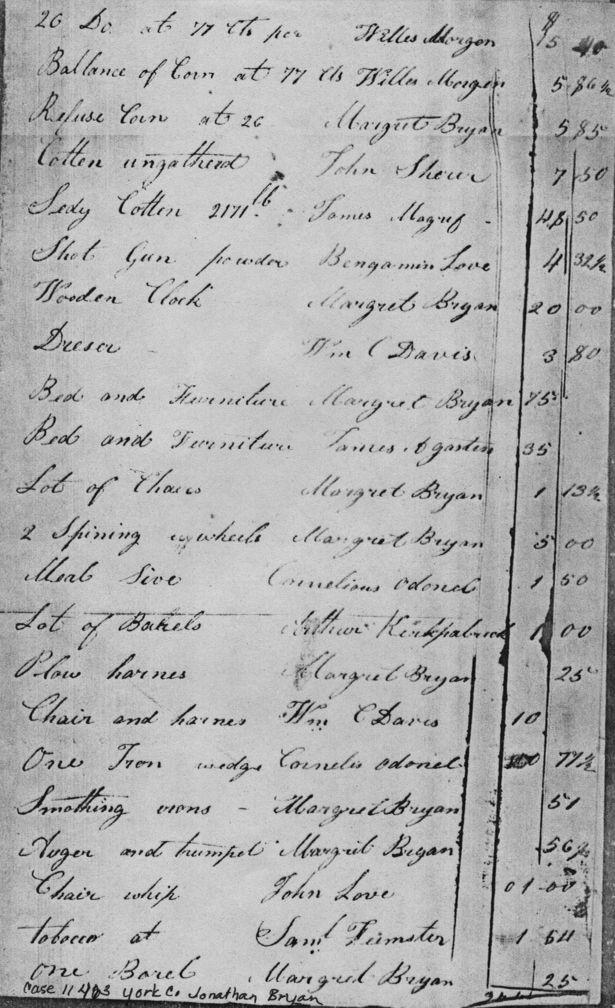 $
20 Do. at 77 cts per Willes Morgan 15 40
Ballance of Corn at 77 cts Willes Morgan 5 86 1/2
Refuse Corn at 26 Margret Bryan 5 85
Cotten ungatherd John Sherer 7 50
Sedy Cotten 2171 lb James Magref - 48 50
Shot Gun powder Bengamin Love 4 32 1/2
Wooden Clock Margret Bryan 20 00
Dreser Wm C Davis 3 80
Bed and Furniture Margret Bryan 75
Bed and Furniture James 35
Lot of Chairs Margret Bryan 1 13 1/2
2 Spining wheels Margret Bryan 5 00
Meal Sive Cornelious Odonel 1 50
Lot of Barels Arthur Kirkpatrick 1 00
Plow harnes Margret Bryan 25
Chair and harnes Wm C Davis 10
One Iron wedge Cornelis Odonel 00 77 1/2
Smothing irons - Margret Bryan 51
Auger and trumpet Margrit Bryan 56 1/2
Chair whip John Love 01 00
tobacco at Saml Feemster 1 64
One Barel Margret Bryan 25
Case 11 483 York Co Jonathan Bryan